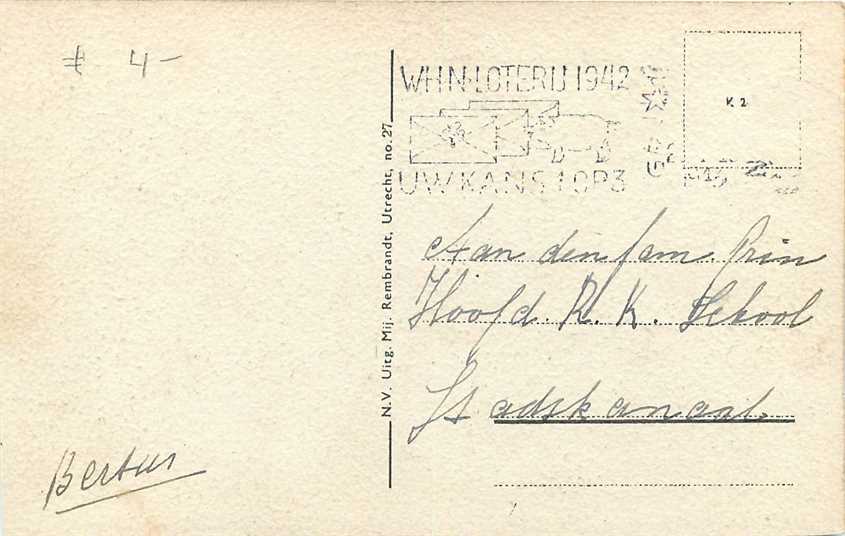 € 4-
WHN-LOTERIJ 1942
UW KANS 1 OP 3
K 2
N.V. Uitg. Mij. Rembrandt, Utrecht, no. 27
Aan den fam. Prin
Hoofd. R. K. School
Stadskanaal.
Bertus